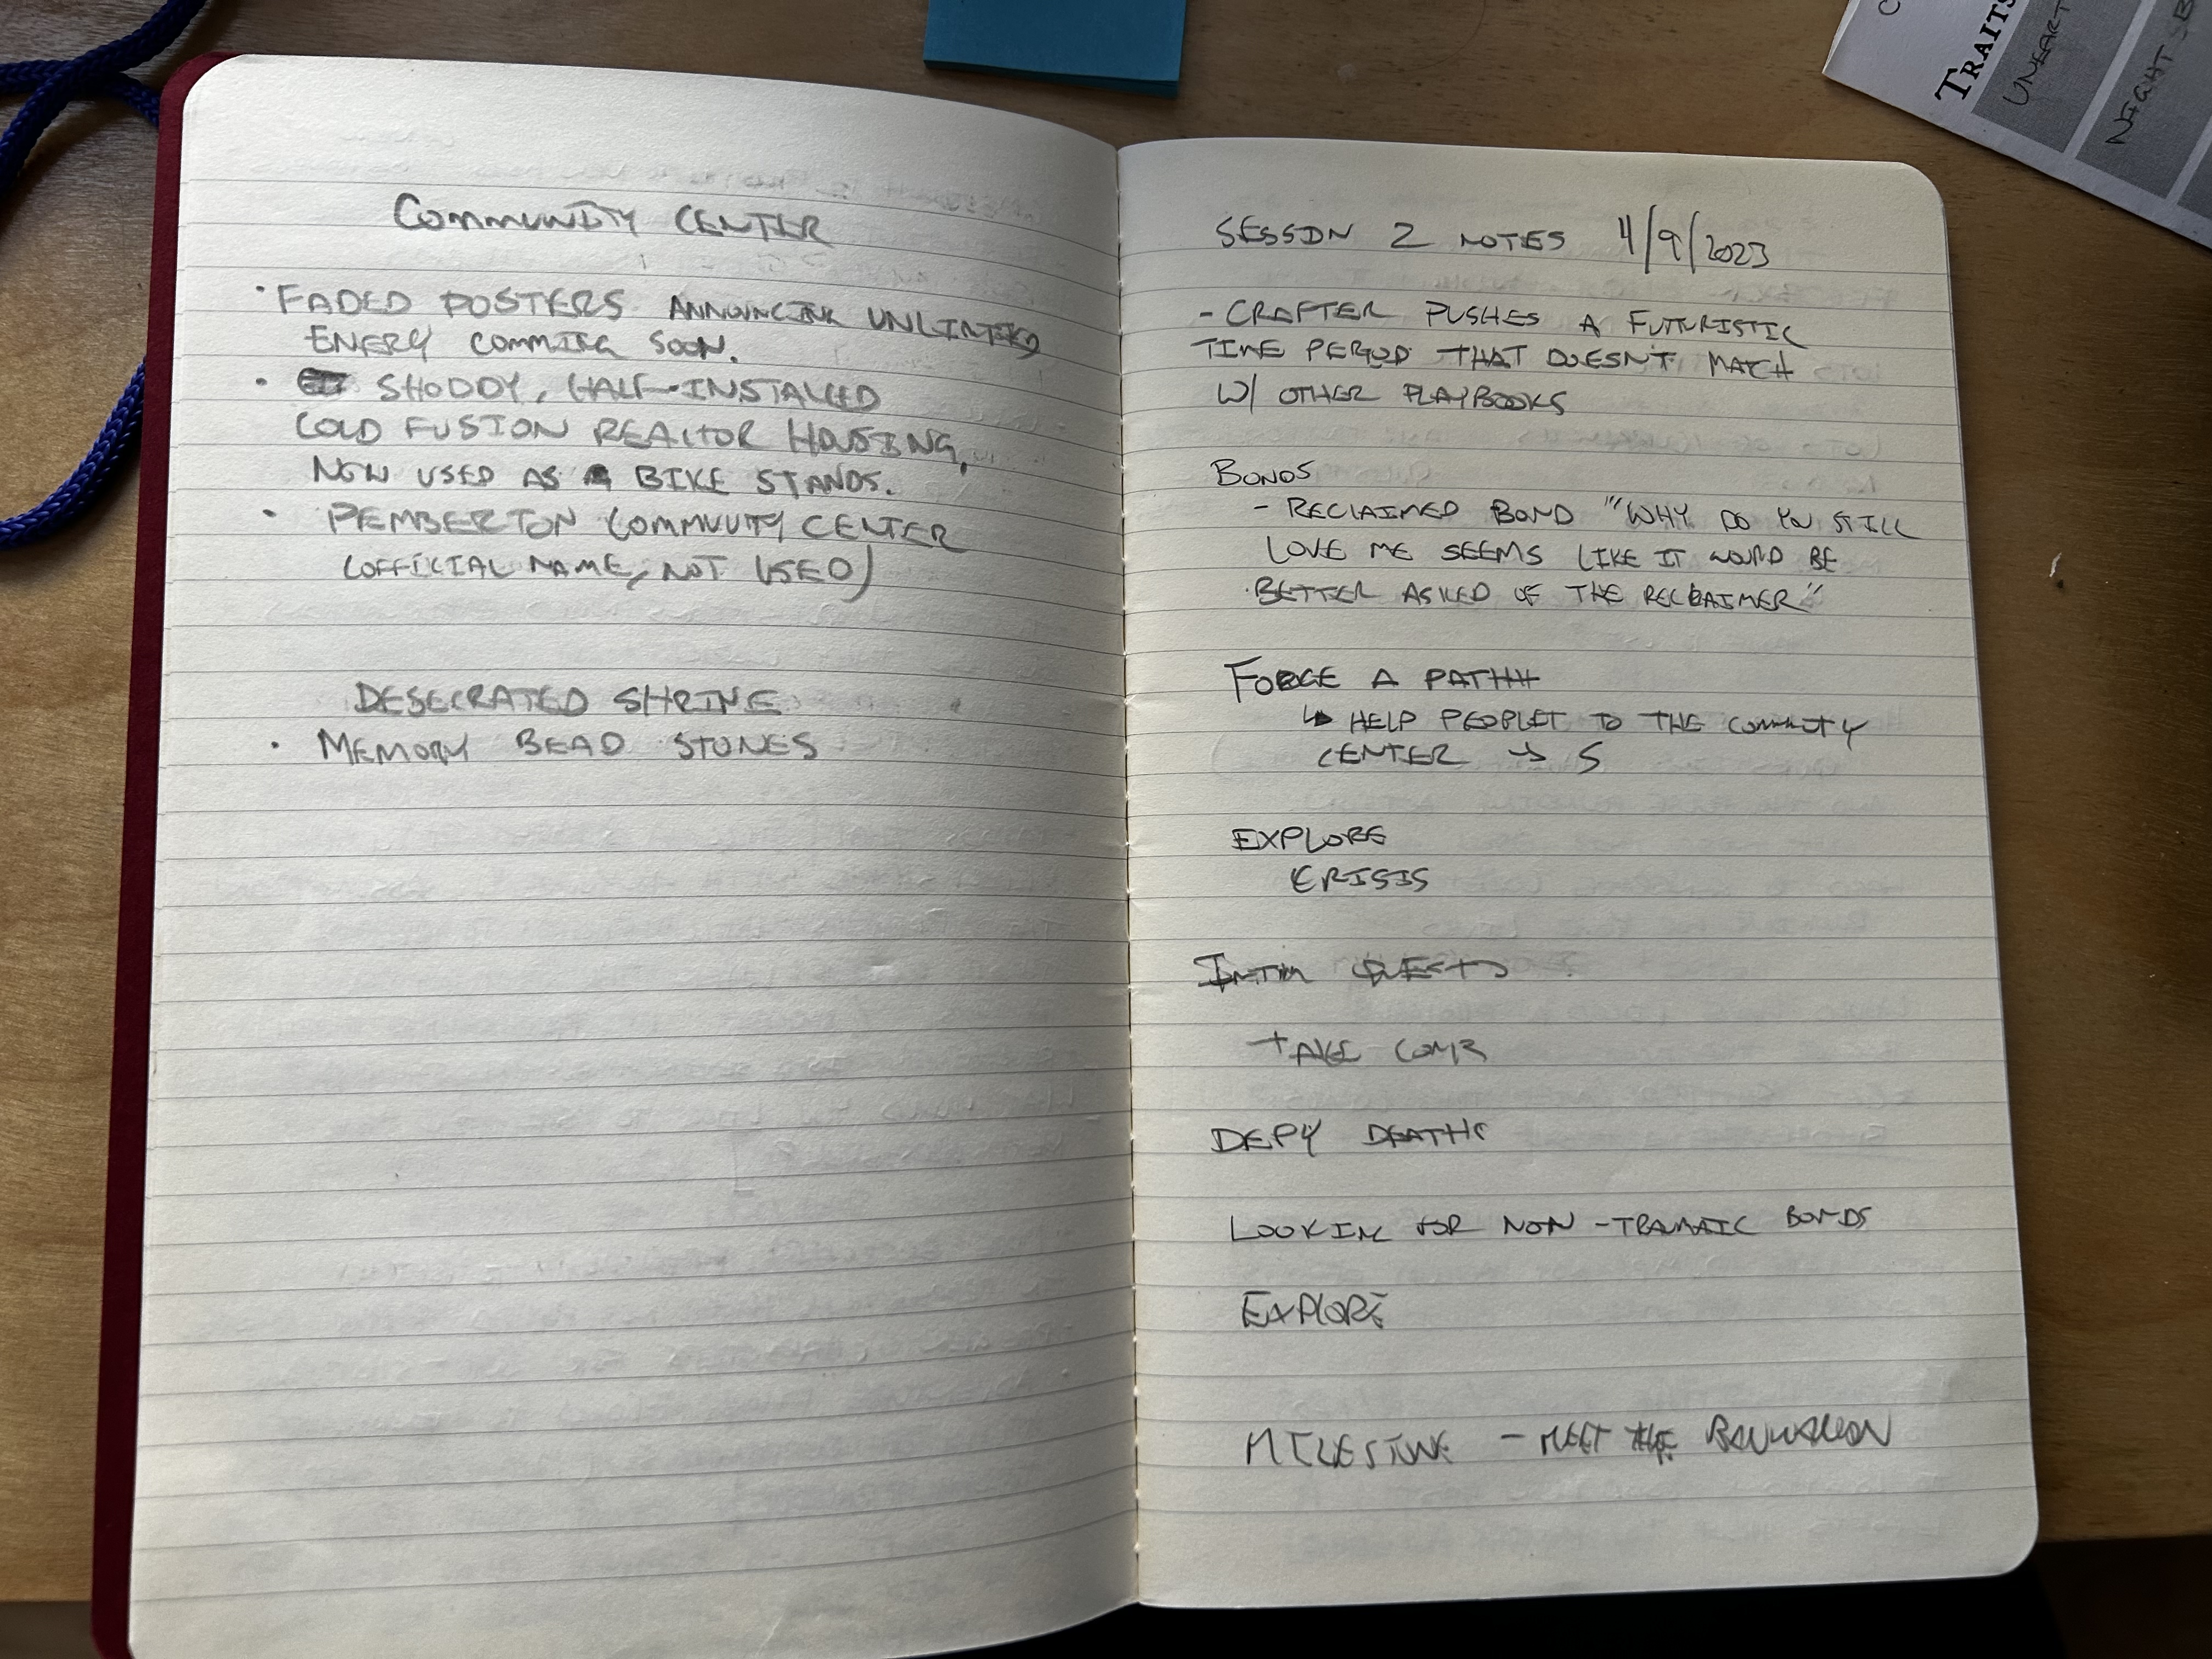 COMMUNITY CENTER
• FADED POSTERS ANNOUNCING UNLIMITED
ENERY COMMING SOON.
• SHODDY, HALF-INSTALLED
COLD FUSION REACTOR HOUSING,
NOW USED AS BIKE STANDS.
• PEMBERTON COMMUUITY CENTER
(OFFICIAL NAME, NOT USED)
DESECRATED SHRINE
• MEMORY BEAD STONES
SESSION 2 NOTES 4/9/2023
- CRAFTER PUSHES A FUTURISTIC
TIME PERIOD THAT DOESN'T MATCH
W/ OTHER PLAYBOOKS
BONDS
- RECLAIMED BOND "WHY DO YOU STILL
LOVE ME SEEMS LIKE IT WOULD BE
BETTER ASKED OF THE RECLAIMER"
FORGE A PATH
↳ HELP PEOPLE TO THE COMMUITY
CENTER → 5
EXPLORE
CRISIS
QUEST
TAKE
DEFY DEATH
LOOKING FOR NON-TRAMATIC BONDS
EXPLORE
MILESTONE - MEET THE
C
TRAITS
UNEART
NIGHT